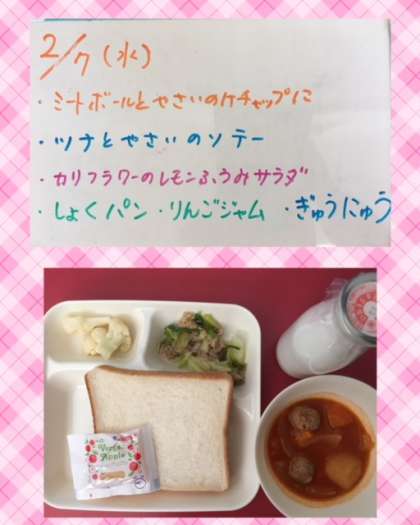 2/7(水)
・ミートボールとやさいのケチャップに
・ツナとやさいのソテー
・カリフラワーのレモンふうみサラダ
・しょくパン・りんごジャム ・ぎゅうにゅう
Apple